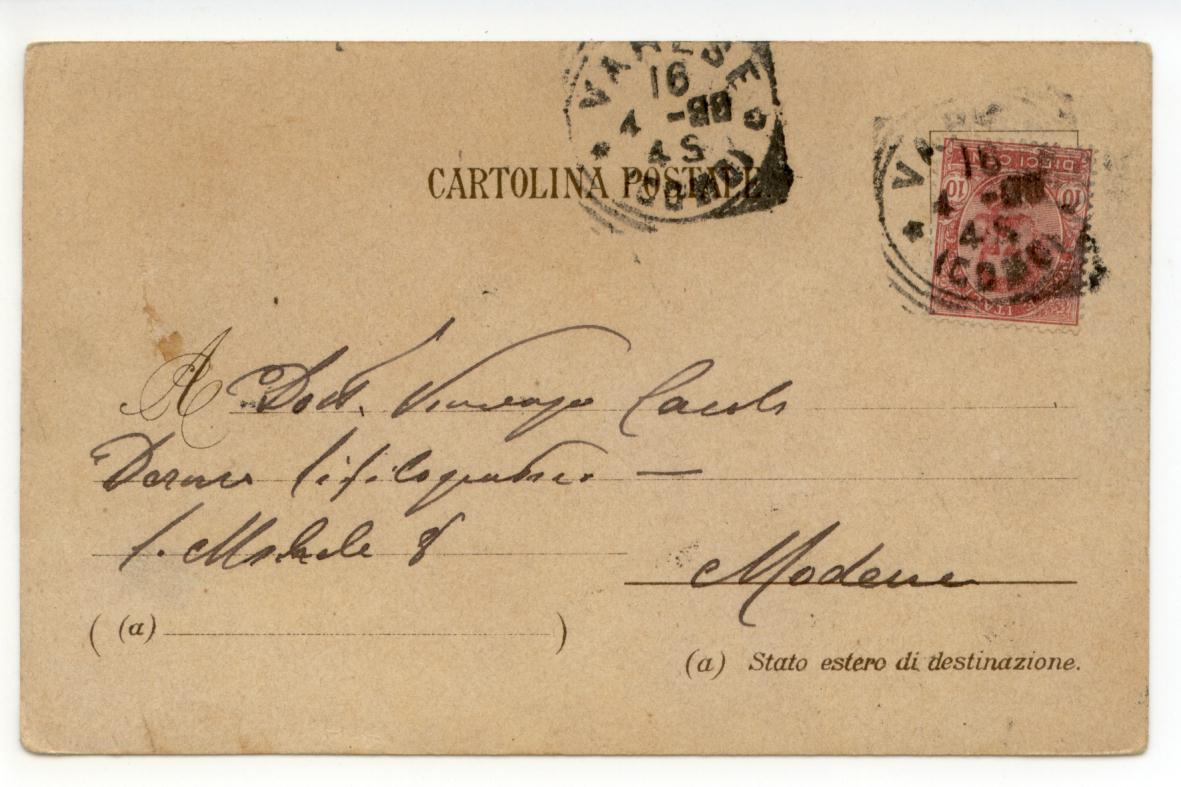 VARESE
16
4 - 98
4 S
(COMO)
CARTOLINA POSTALE
16
4
4 S
(COMO)
DIECI CENT
10 10
A Dott. Vincenzo
S. Michele 8
Modena
( (a) )
(a) Stato estero di destinazione.